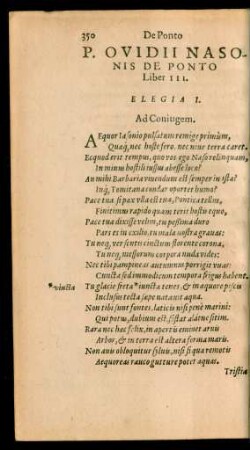 350 De Ponto
P. OVIDII NASO-
NIS DE PONTO
Liber III.
ELEGIA I.
Ad Coniugem.
AEquor Iasonio pulsatum remige primùm,
Quæq́; nec hoste fero, nec niue terra caret.
Ecquod erit tempus, quo vos ego Naso relinquam,
In minus hostili iussus abesse loco?
An mihi Barbaria viuendum est semper in ista?
Inq́; Tomitana condar oportet humo?
Pace tua si pax vlla est tua, Pontica tellus,
Finitimus rapido quam terit hostis equo,
Pace tua dixisse velim, tu pessima duro
Pars es in exilio, tu mala nostra grauas:
Tu neq́; ver sentis cinctum florente corona,
Tu neq́; messorum corpora nuda vides:
Nec tibi pampineas autumnus porrigit vuas:
Cuncta sed immodicum tempora frigus habent.
*vincta Tu glacie freta *iuncta tenes, & in æquore piscis
Inclusus tecta sæpe natauit aqua.
Non tibi sunt fontes, laticis nisi penè marini:
Qui potus, dubium est, sistat alatne sitim.
Rara nec hæc felix, in apertis eminet aruis
Arbor, & in terra est altera forma maris.
Non auis obloquitur syluis, nisi si qua remotis
Aequoreas rauco gutture potet aquas.
Tristia